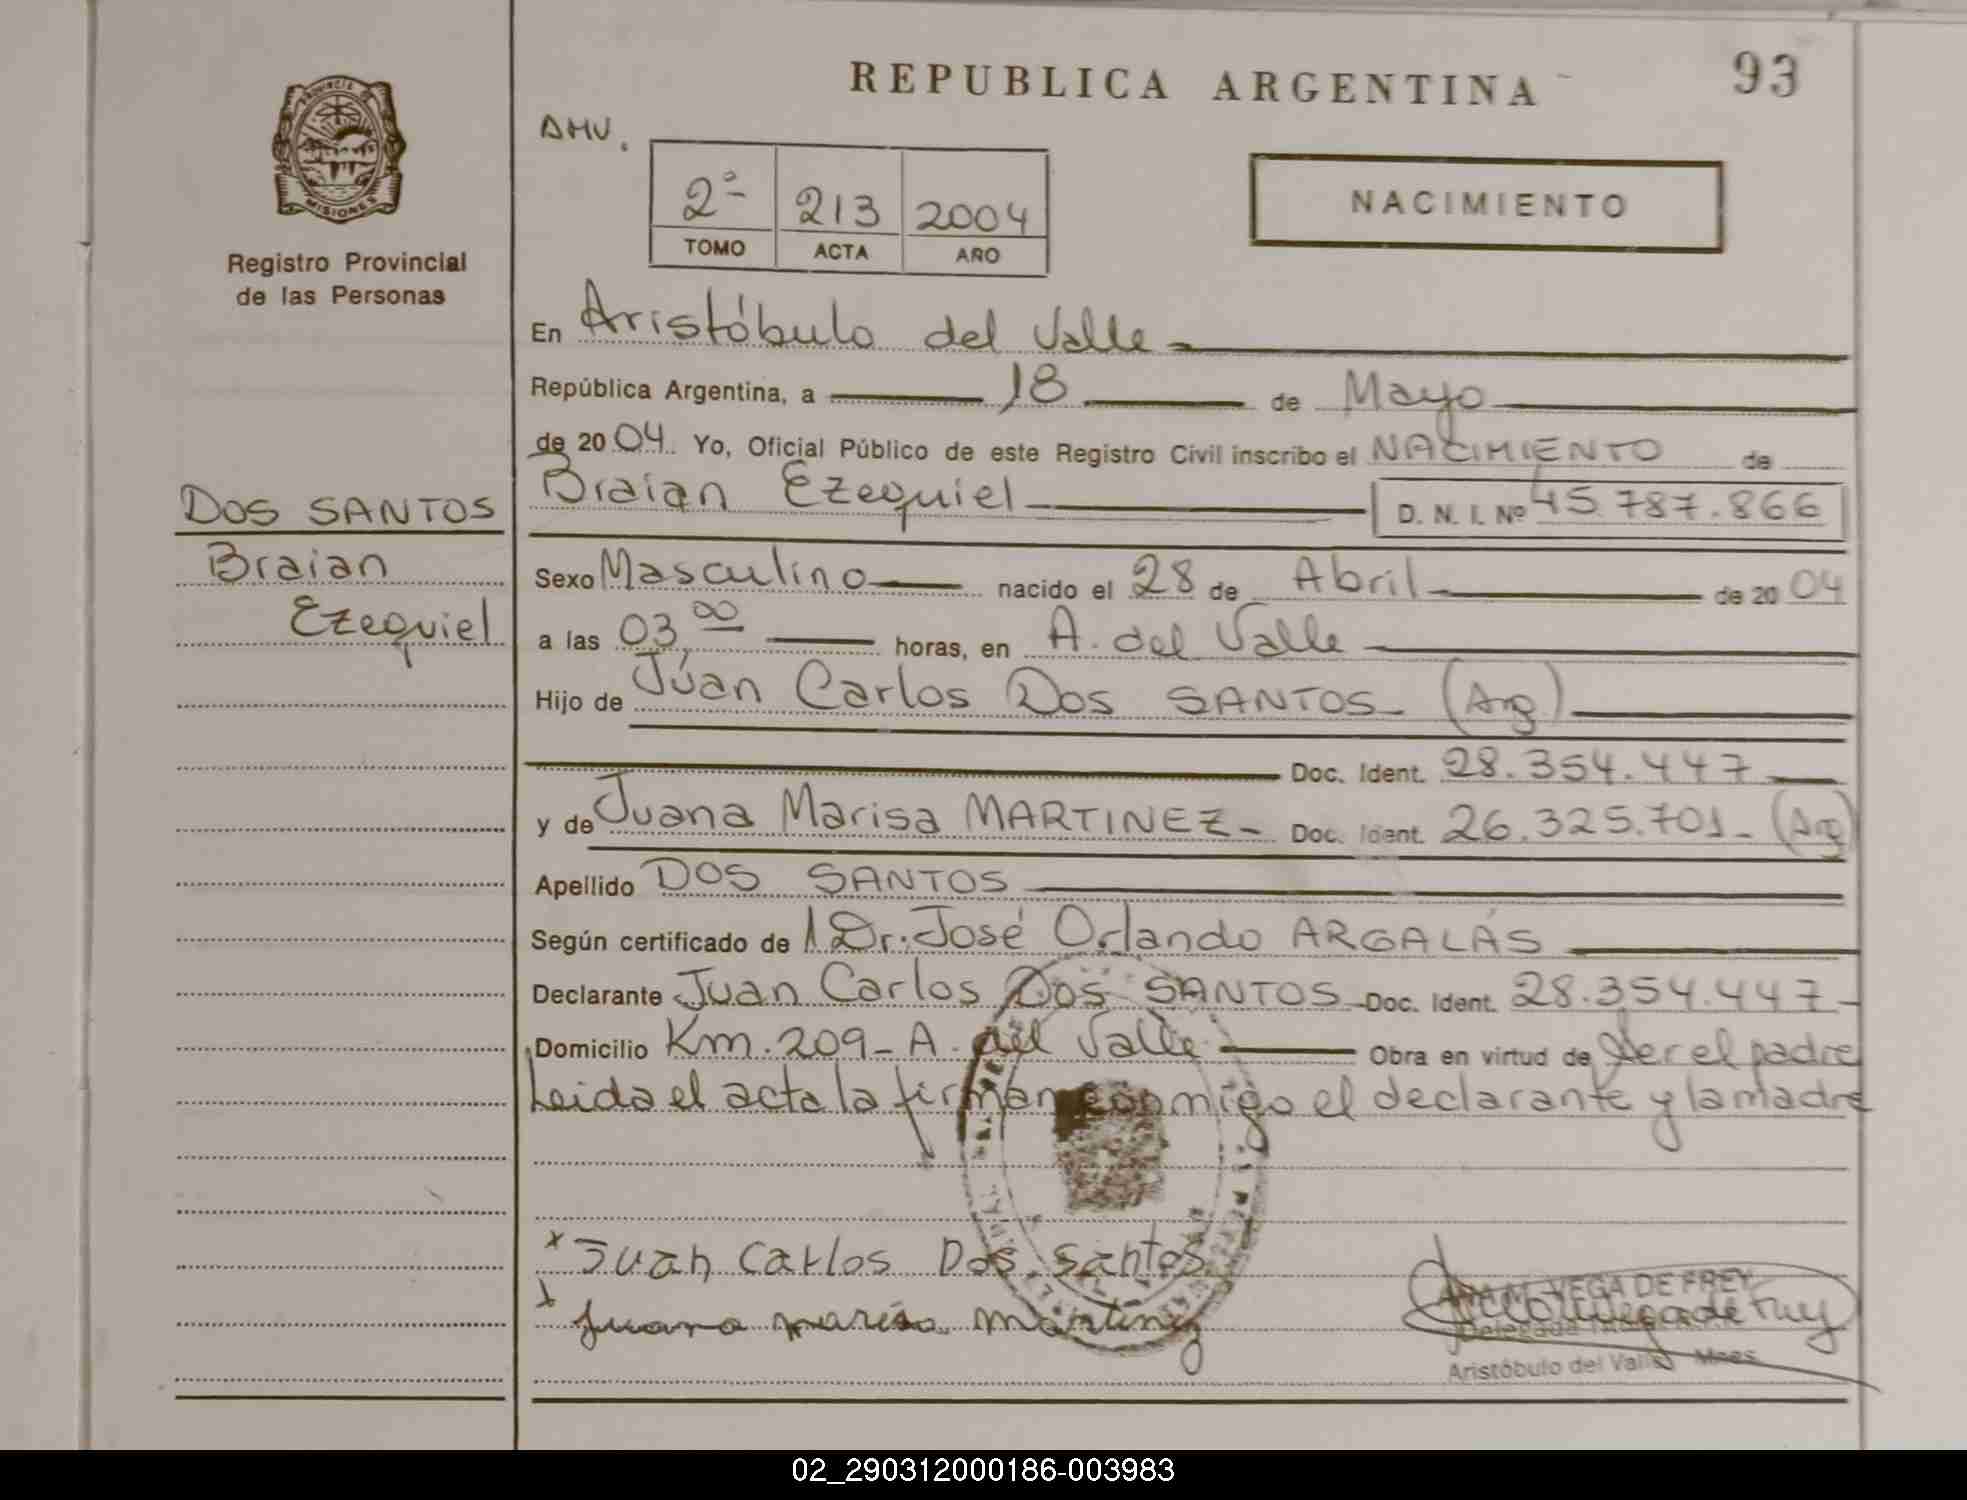 REPUBLICA ARGENTINA
93
PROVINCIA DE
MISIONES
Registro Provincial
de las Personas
AMV.
2º 213 2004
TOMO ACTA AÑO
NACIMIENTO
En Aristóbulo del Valle
República Argentina, a 18 de Mayo
de 2004 Yo, Oficial Público de este Registro Civil inscribo el NACIMIENTO de
DOS SANTOS
Braian
Ezequiel
Braian Ezequiel D. N. I. Nº 45.787.866
Sexo Masculino nacido el 28 de Abril de 2004
a las 03,00 horas, en A. del Valle
Hijo de Juan Carlos Dos SANTOS (Arg)
Doc. Ident. 28.354.447
y de Juana Marisa MARTINEZ Doc. Ident. 26.325.701 (Arg)
Apellido DOS SANTOS
Según certificado de Dr. José Orlando ARGALÁS
Declarante Juan Carlos Dos SANTOS Doc. Ident. 28.354.447
Domicilio Km. 209 - A. del Valle Obra en virtud de Ser el padre
Leida el acta la firman conmigo el declarante y la madre
x Juan Carlos Dos Santos
x Juana marisa martinez
VEGA DE FREY
Delegada
Aristóbulo del Valle Mnes
02_290312000186-003983